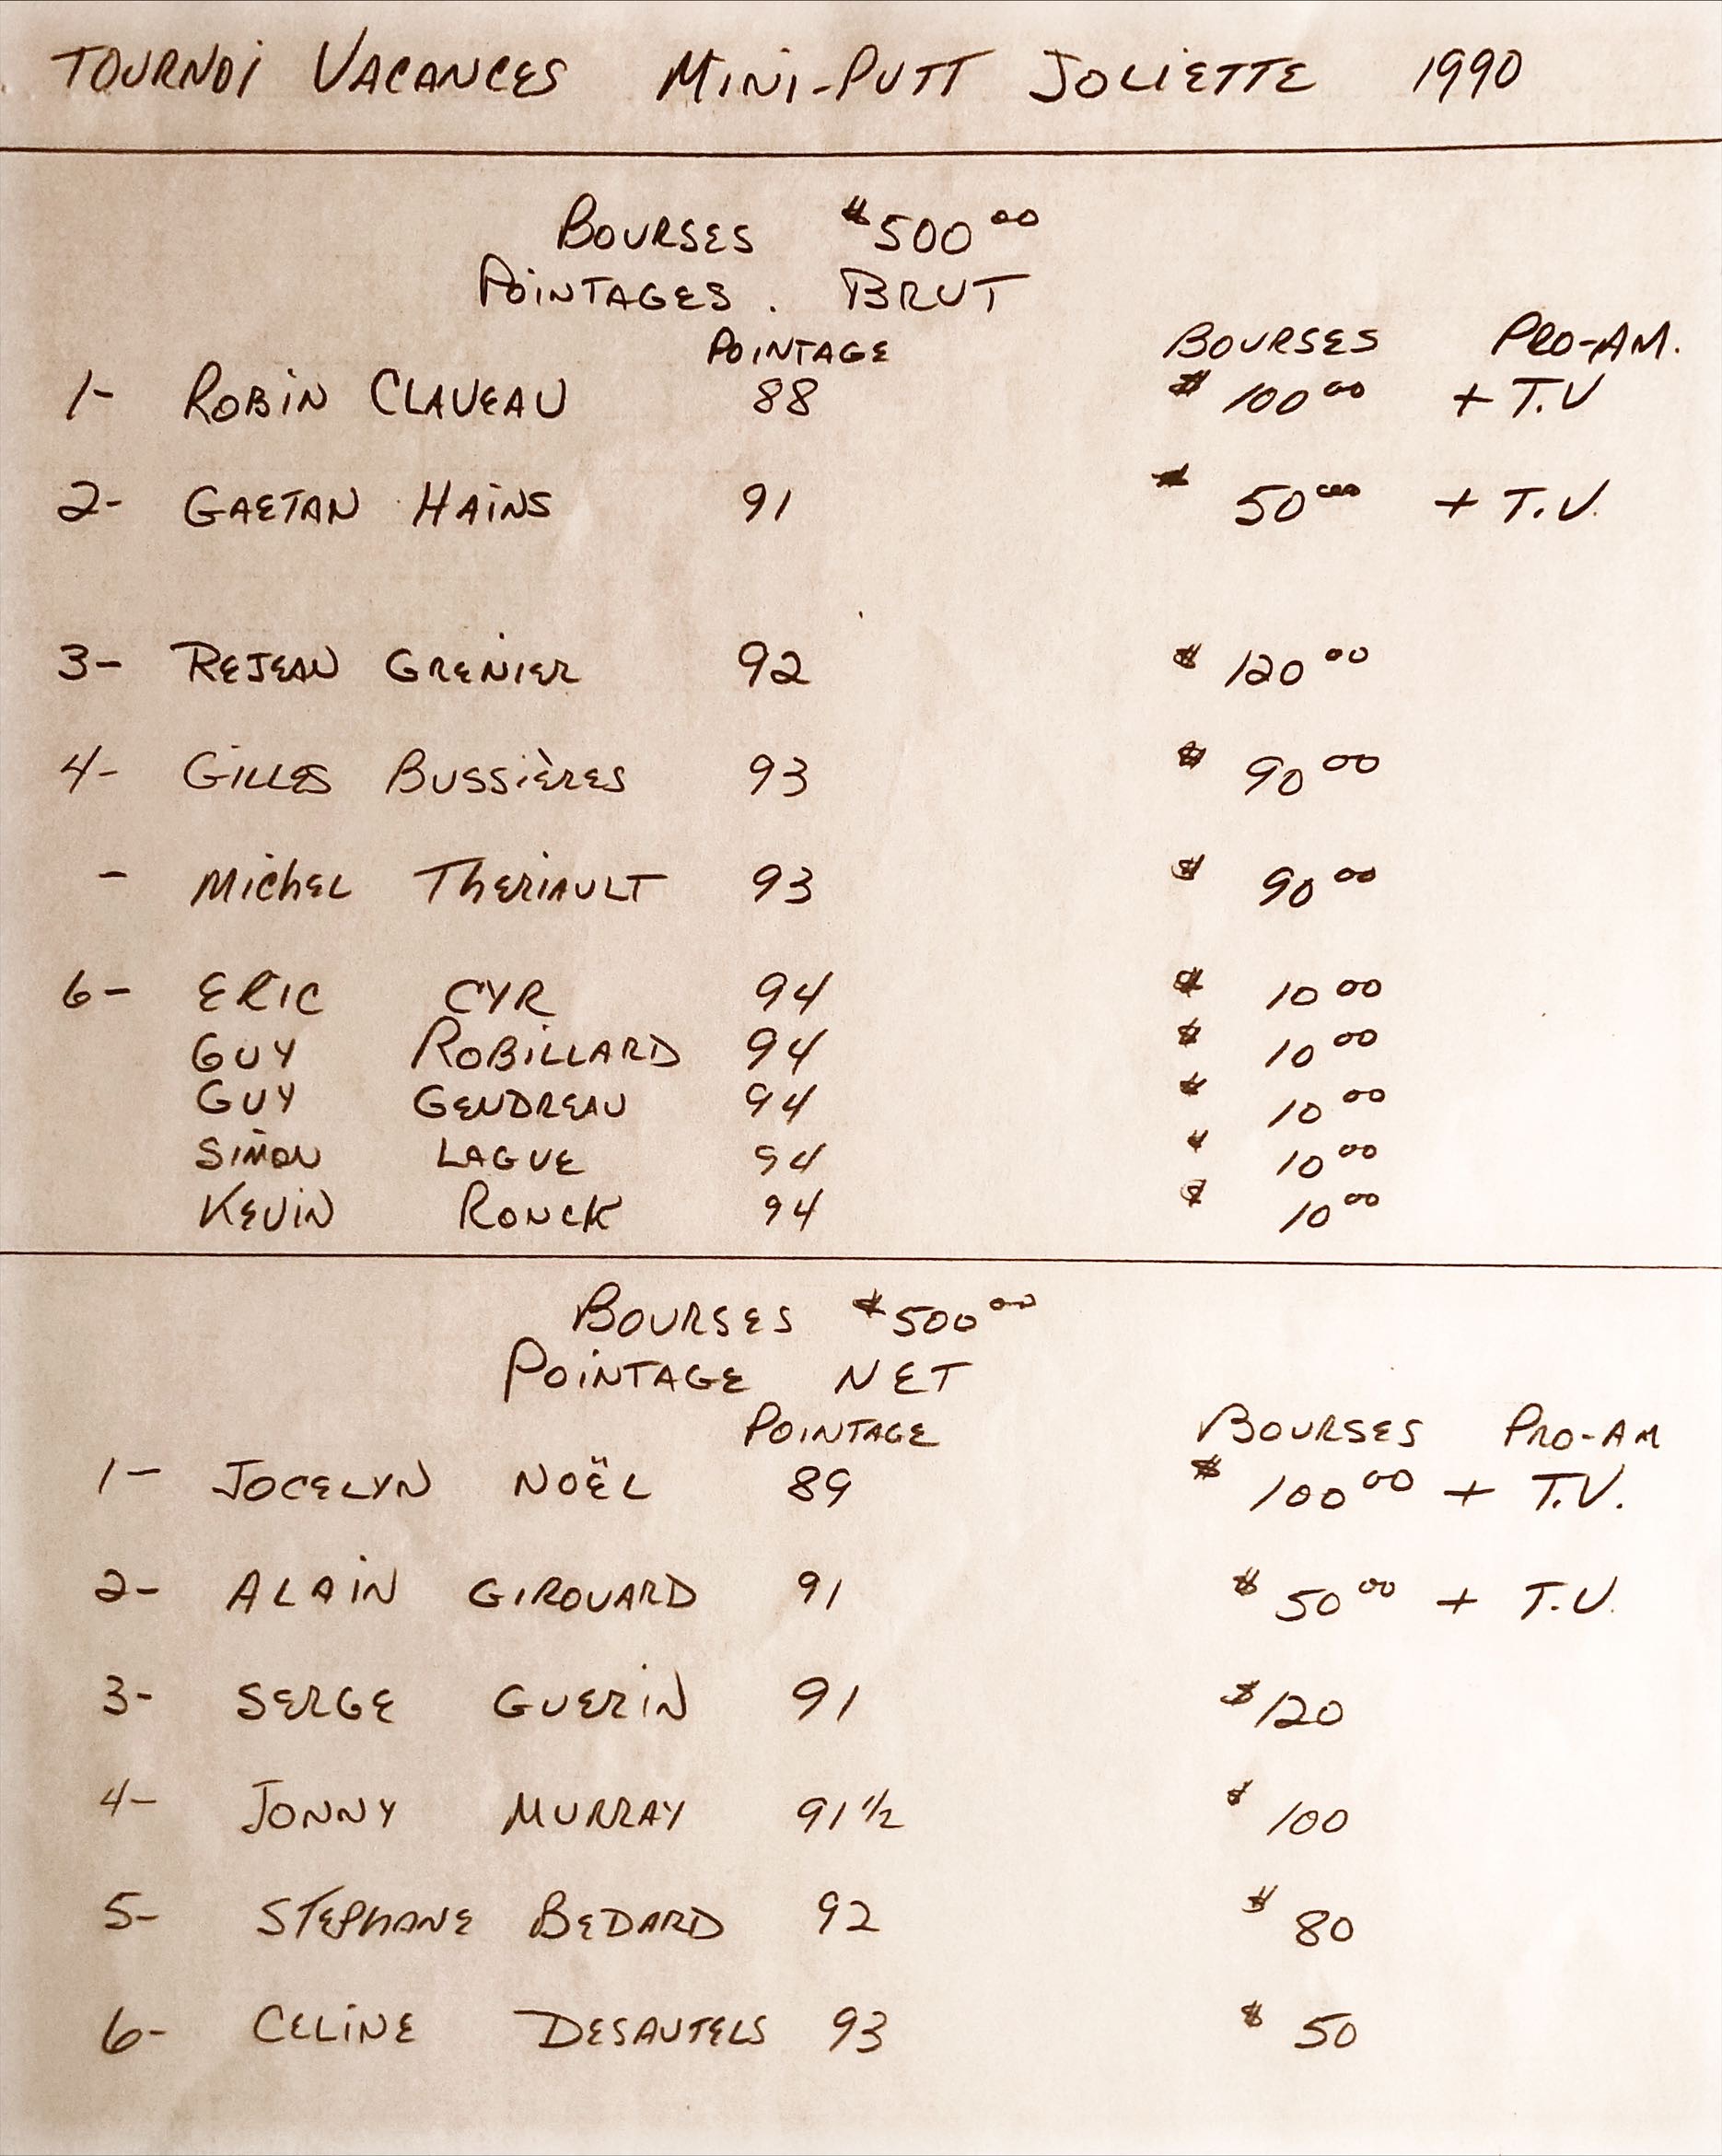 TOURNOI VACANCES MINI-PUTT JOLIETTE 1990
BOURSES $500.00
POINTAGES. BRUT
POINTAGE BOURSES PRO-AM.
1- ROBIN CLAVEAU 88 $100.00 + T.V
2- GAETAN HAINS 91 $50.00 + T.V.
3- REJEAN GRENIER 92 $120.00
4- GILLES BUSSIÈRES 93 $90.00
- MICHEL THERIAULT 93 $90.00
6- ERIC CYR 94 $10.00
GUY ROBILLARD 94 $10.00
GUY GENDREAU 94 $10.00
SIMON LAGUE 94 $10.00
KEVIN RONCK 94 $10.00
BOURSES $500.00
POINTAGE NET
POINTAGE BOURSES PRO-AM
1- JOCELYN NOËL 89 $100.00 + T.V.
2- ALAIN GIROUARD 91 $50.00 + T.V.
3- SERGE GUERIN 91 $120
4- JONNY MURRAY 91 1/2 $100
5- STEPHANE BEDARD 92 $80
6- CELINE DESAUTELS 93 $50